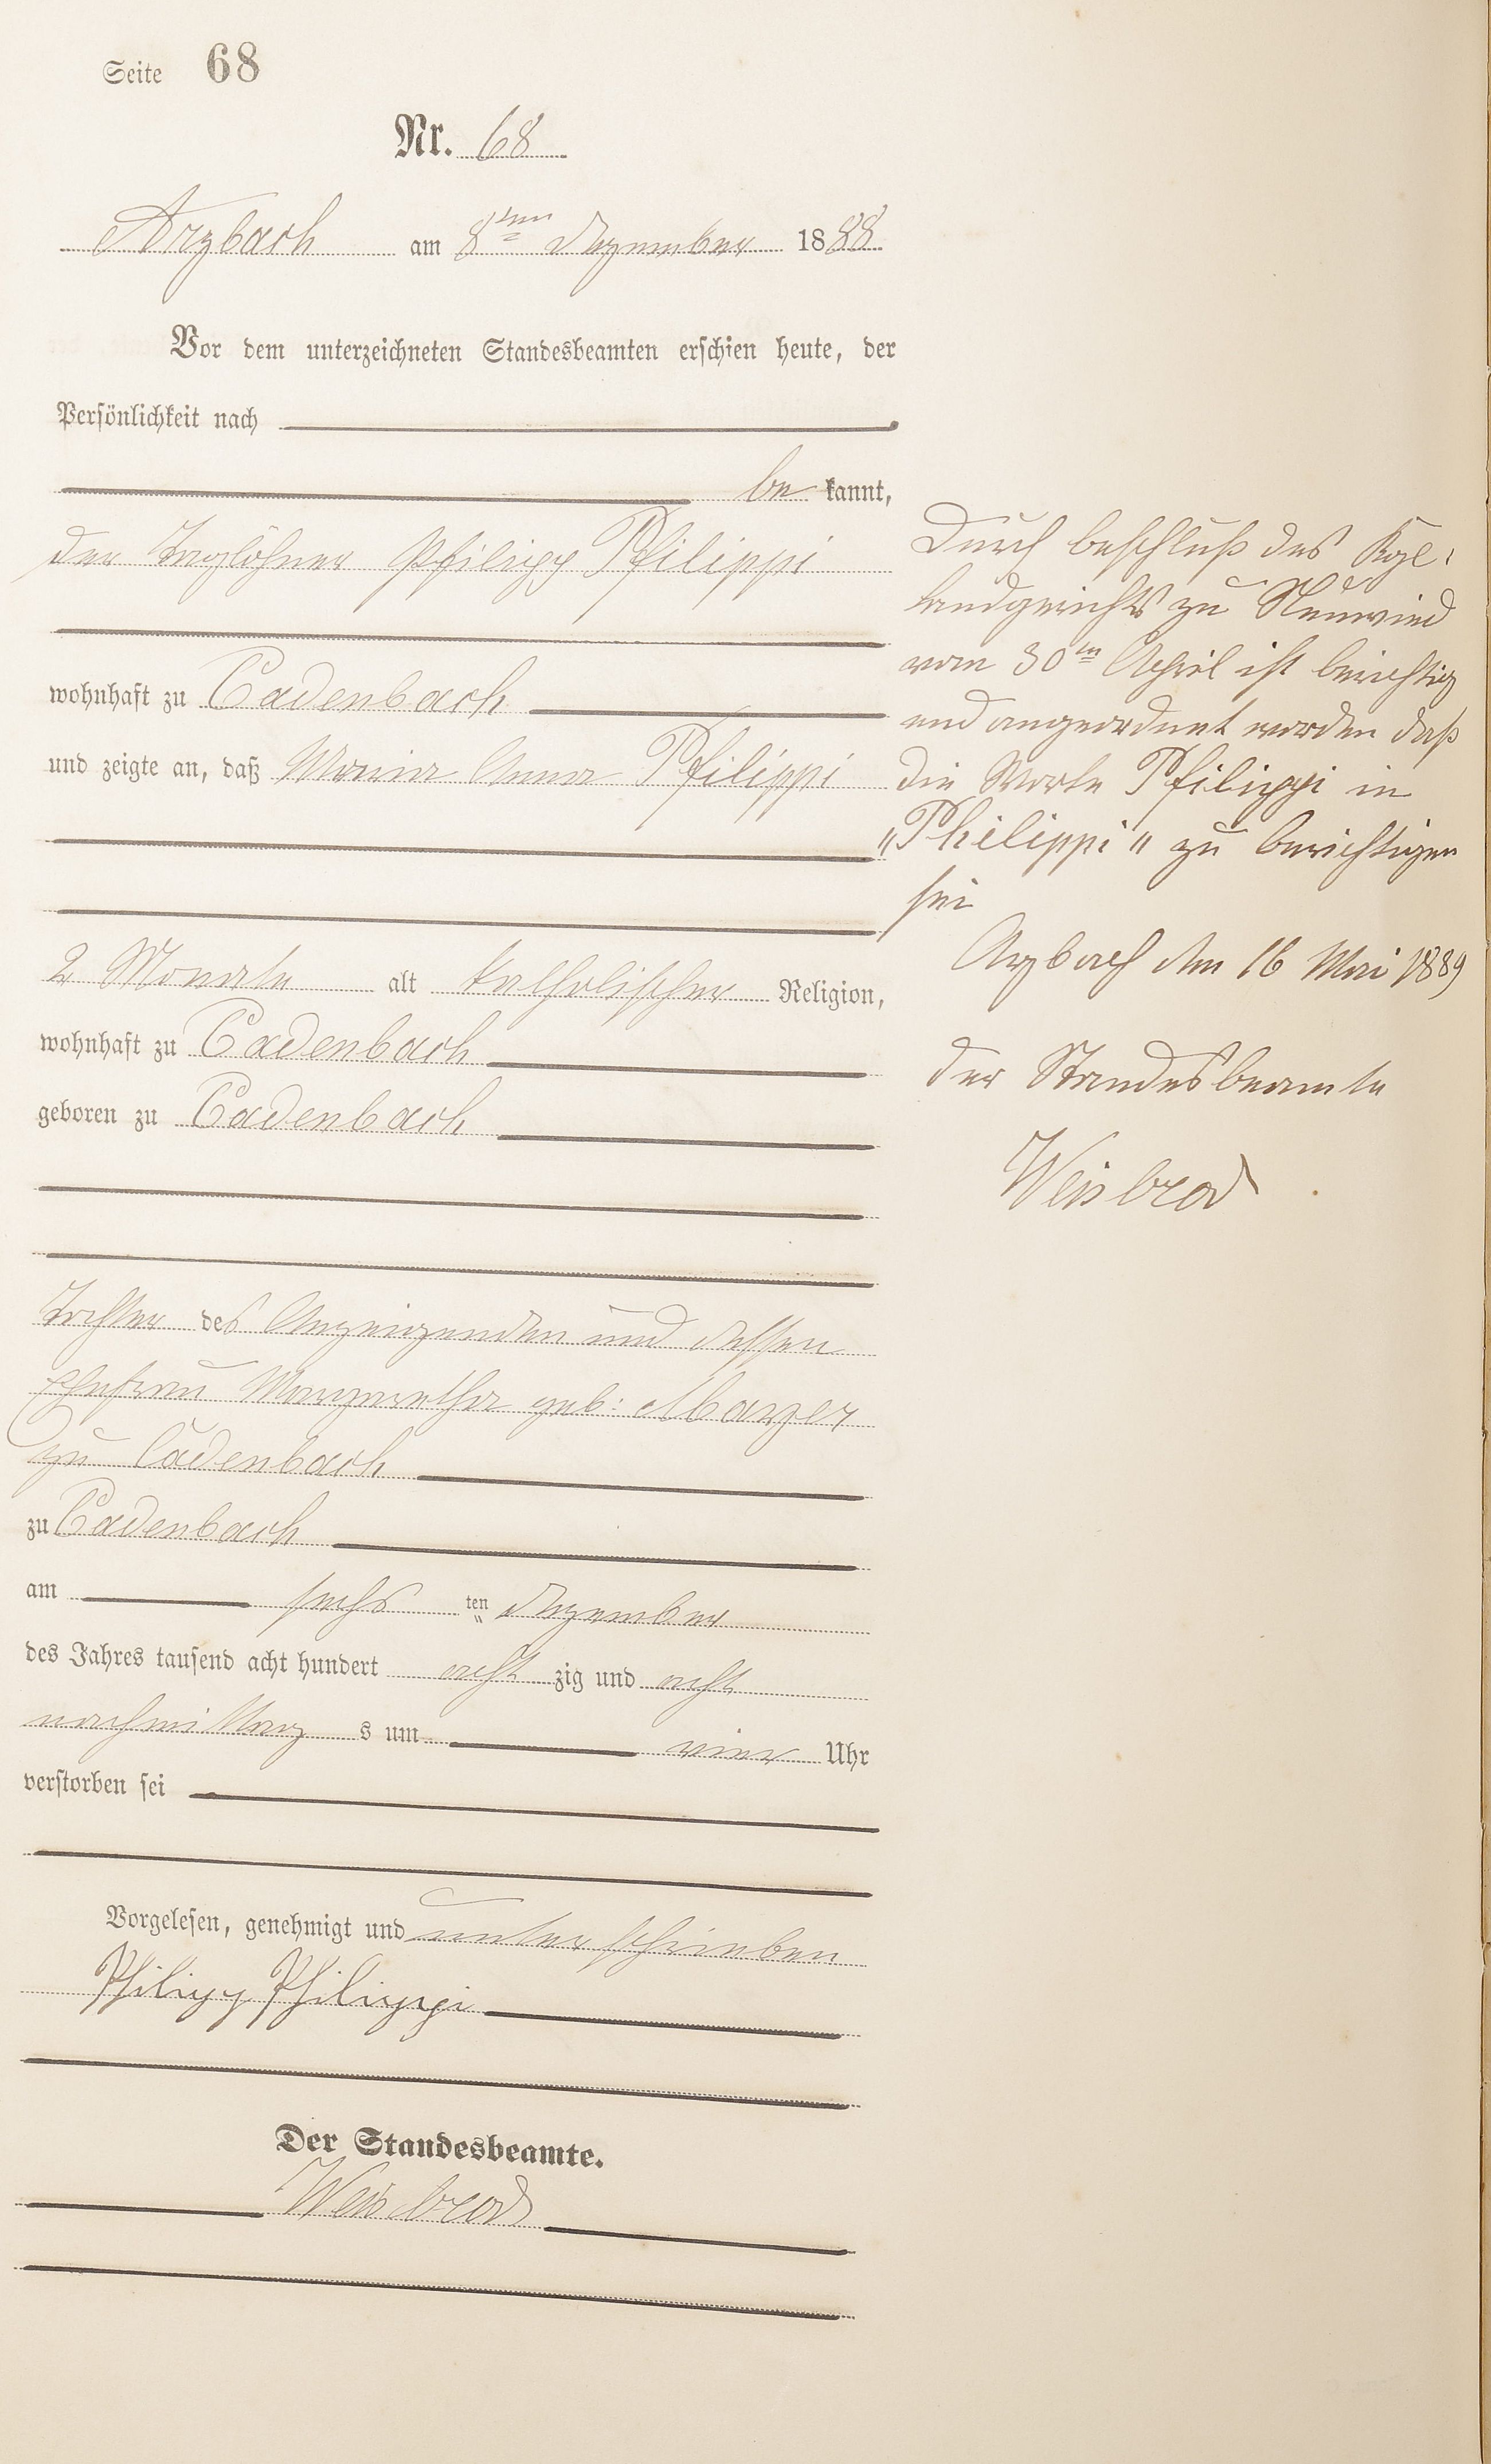 Seite 68
Nr. 68
Arzbach am 8ten Dezember 1888
Vor dem unterzeichneten Standesbeamten erschien heute, der
Persönlichkeit nach
be kannt,
der Taglöhner Pfilipp Pfilippi
wohnhaft zu Cadenbach
und zeigte an, daß Maria Anna Pfilippi
2 Monate alt katholischer Religion,
wohnhaft zu Cadenbach
geboren zu Cadenbach
Tochter des Anzeigenden und dessen
Ehefrau Margaretha geb: Marzer
zu Cadenbach
zu Cadenbach
am sechs ten Dezember
des Jahres tausend acht hundert acht zig und acht
nachmittag s um vier Uhr
verstorben sei
Vorgelesen, genehmigt und unterschrieben
Philipp Philippi
Der Standesbeamte.
Weisbrod
Durch beschluß des Kgl:
Landgerichts zu Neuwied
vom 30ten April ist berichtig
und angeordnet worden daß
die Worte Pfilippi in
"Philippi" zu berichtigen
sei
Arzbach den 16 Mai 1889
der Standesbeamte
Weisbrod